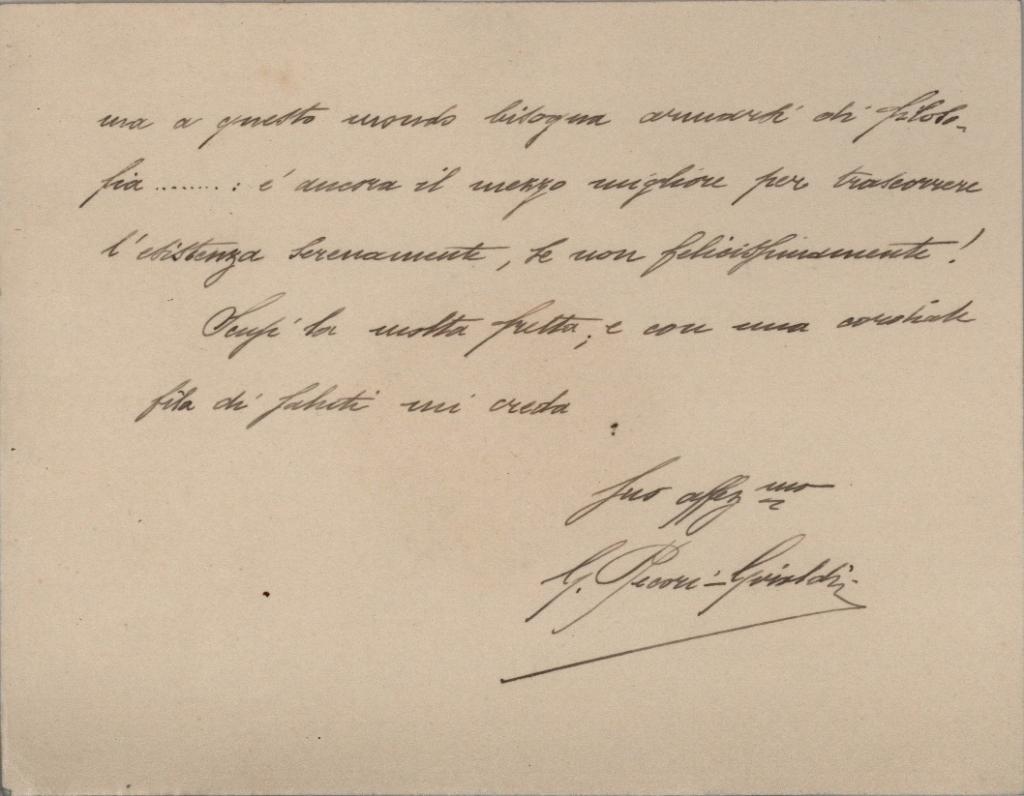 ma a questo mondo bisogna armarsi di filoso-
fia ........: é ancora il mezzo migliore per trascorrere
l'esistenza serenamente, se non felicissimamente!
Scusi la molta fretta; e con una cordiale
fila di saluti mi creda
Suo affez mo
G. Pecori-Giraldi